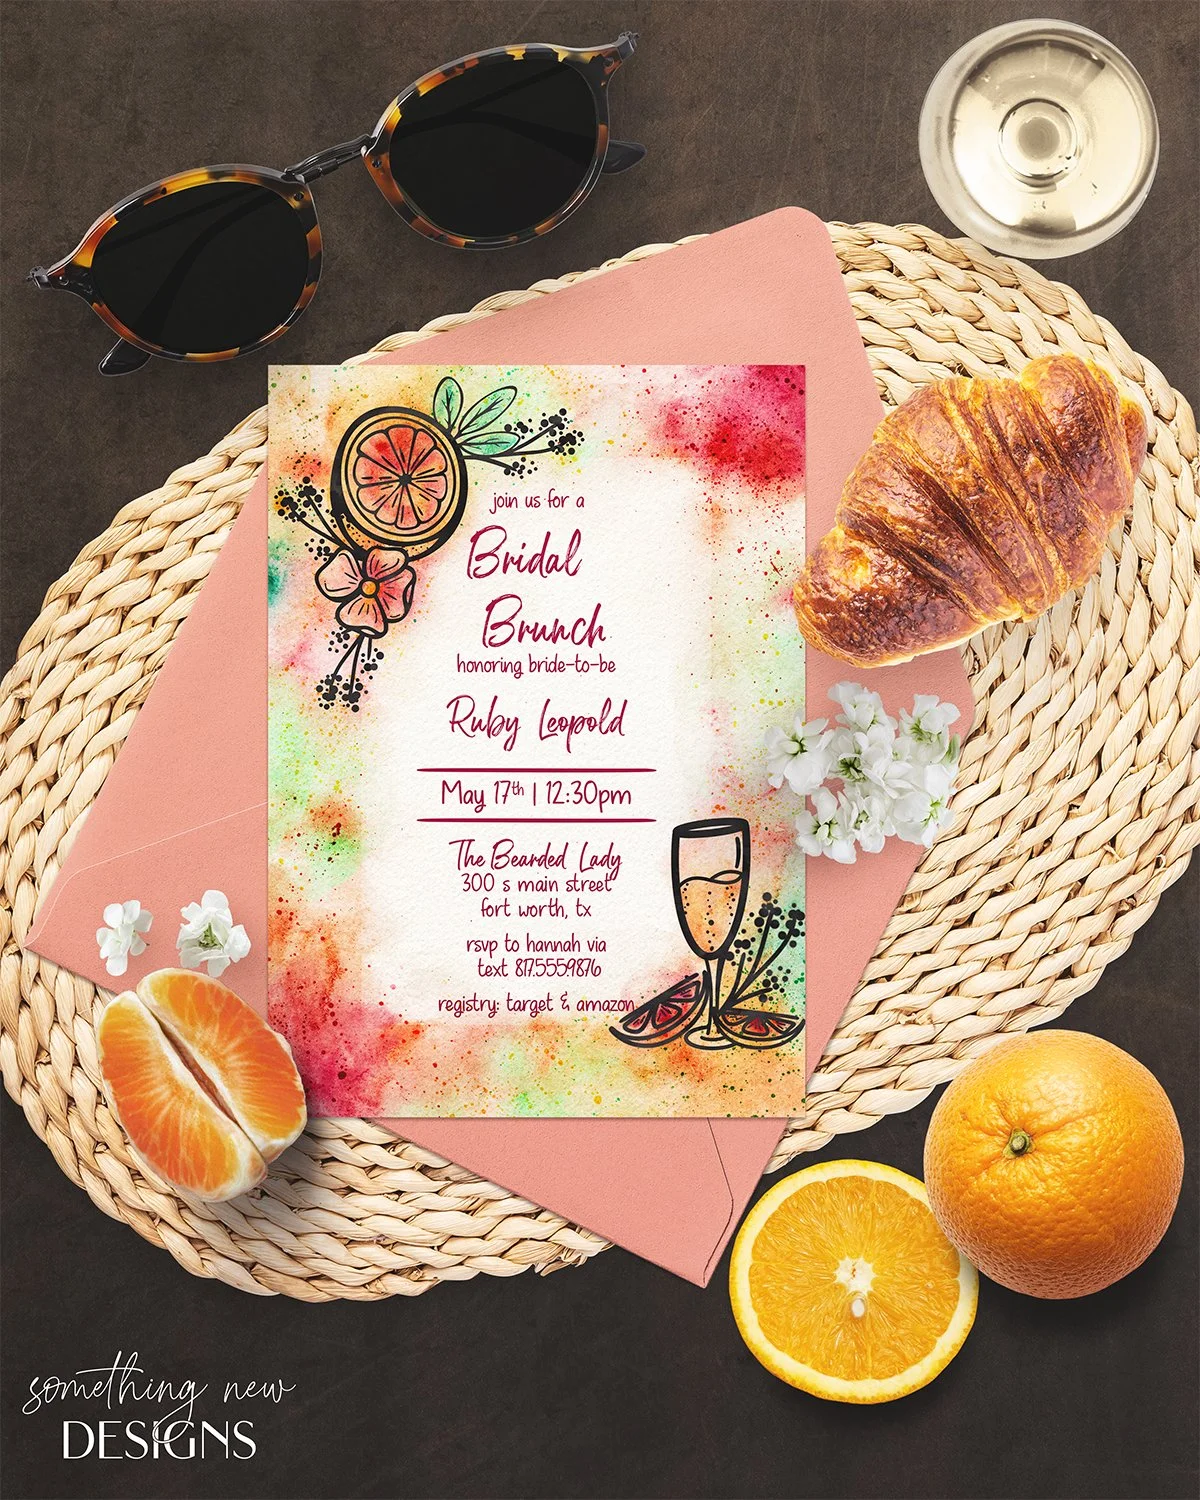 join us for a
Bridal
Brunch
honoring bride-to-be
Ruby Leopold
May 17th | 12:30pm
The Bearded Lady
300 s main street
fort worth, tx
rsvp to hannah via
text 817.555.9876
registry: target & amazon
something new
DESIGNS